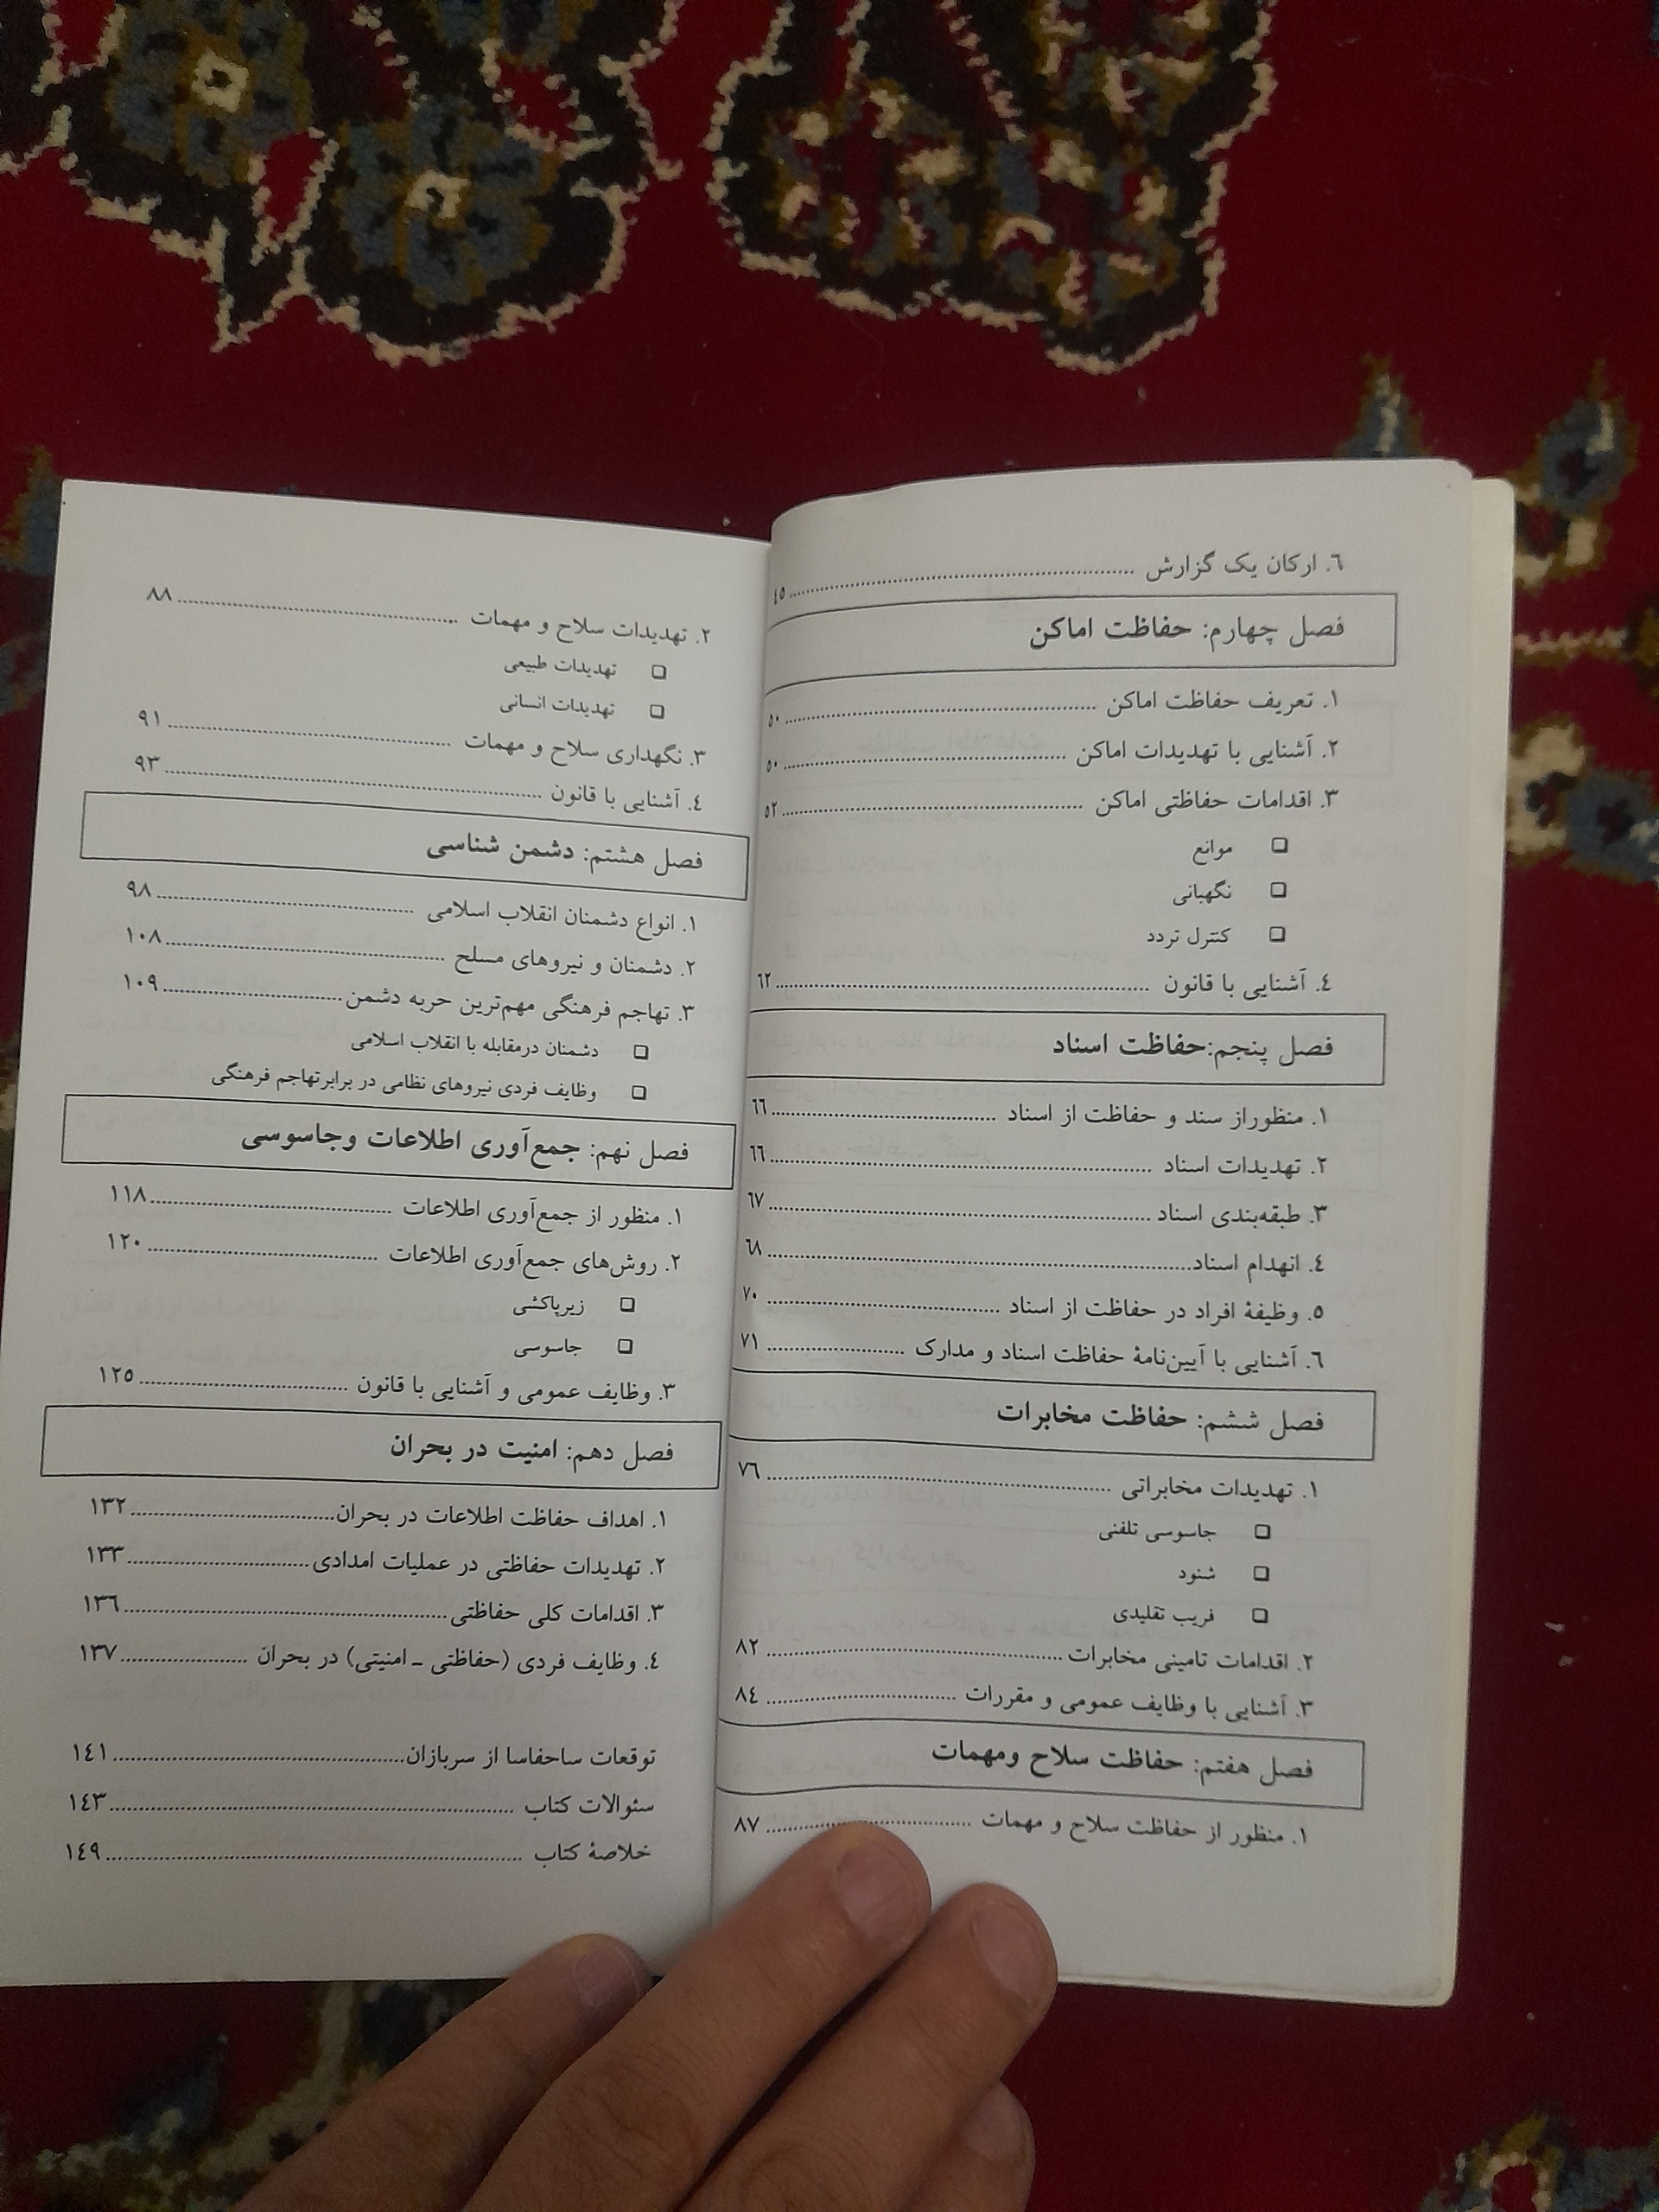 ٦. ارکان یک گزارش ........ ٤٥
فصل چهارم: حفاظت اماکن
١. تعریف حفاظت اماکن ........ ٥٠
٢. آشنایی با تهدیدات اماکن ........ ٥٠
٣. اقدامات حفاظتی اماکن ........ ٥٢
❑ موانع
❑ نگهبانی
❑ کنترل تردد
٤. آشنایی با قانون ........ ٦٢
فصل پنجم:حفاظت اسناد
١. منظوراز سند و حفاظت از اسناد ........ ٦٦
٢. تهدیدات اسناد ........ ٦٦
٣. طبقه‌بندی اسناد ........ ٦٧
٤. انهدام اسناد ........ ٦٨
٥. وظیفۀ افراد در حفاظت از اسناد ........ ٧٠
٦. آشنایی با آیین‌نامۀ حفاظت اسناد و مدارک ........ ٧١
فصل ششم: حفاظت مخابرات
١. تهدیدات مخابراتی ........ ٧٦
❑ جاسوسی تلفنی
❑ شنود
❑ فریب تقلیدی
٢. اقدامات تامینی مخابرات ........ ٨٢
٣. آشنایی با وظایف عمومی و مقررات ........ ٨٤
فصل هفتم: حفاظت سلاح ومهمات
١. منظور از حفاظت سلاح و مهمات ........ ٨٧
٢. تهدیدات سلاح و مهمات ........ ٨٨
❑ تهدیدات طبیعی
❑ تهدیدات انسانی
٣. نگهداری سلاح و مهمات ........ ٩١
٤. آشنایی با قانون ........ ٩٣
فصل هشتم: دشمن شناسی
١. انواع دشمنان انقلاب اسلامی ........ ٩٨
٢. دشمنان و نیروهای مسلح ........ ١٠٨
٣. تهاجم فرهنگی مهم‌ترین حربه دشمن ........ ١٠٩
❑ دشمنان درمقابله با انقلاب اسلامی
❑ وظایف فردی نیروهای نظامی در برابرتهاجم فرهنگی
فصل نهم: جمع‌آوری اطلاعات وجاسوسی
١. منظور از جمع‌آوری اطلاعات ........ ١١٨
٢. روش‌های جمع‌آوری اطلاعات ........ ١٢٠
❑ زیرپاکشی
❑ جاسوسی
٣. وظایف عمومی و آشنایی با قانون ........ ١٢٥
فصل دهم: امنیت در بحران
١. اهداف حفاظت اطلاعات در بحران ........ ١٣٢
٢. تهدیدات حفاظتی در عملیات امدادی ........ ١٣٣
٣. اقدامات کلی حفاظتی ........ ١٣٦
٤. وظایف فردی (حفاظتی ـ امنیتی) در بحران ........ ١٣٧
توقعات ساحفاسا از سربازان ........ ١٤١
سئوالات کتاب ........ ١٤٣
خلاصۀ کتاب ........ ١٤٩